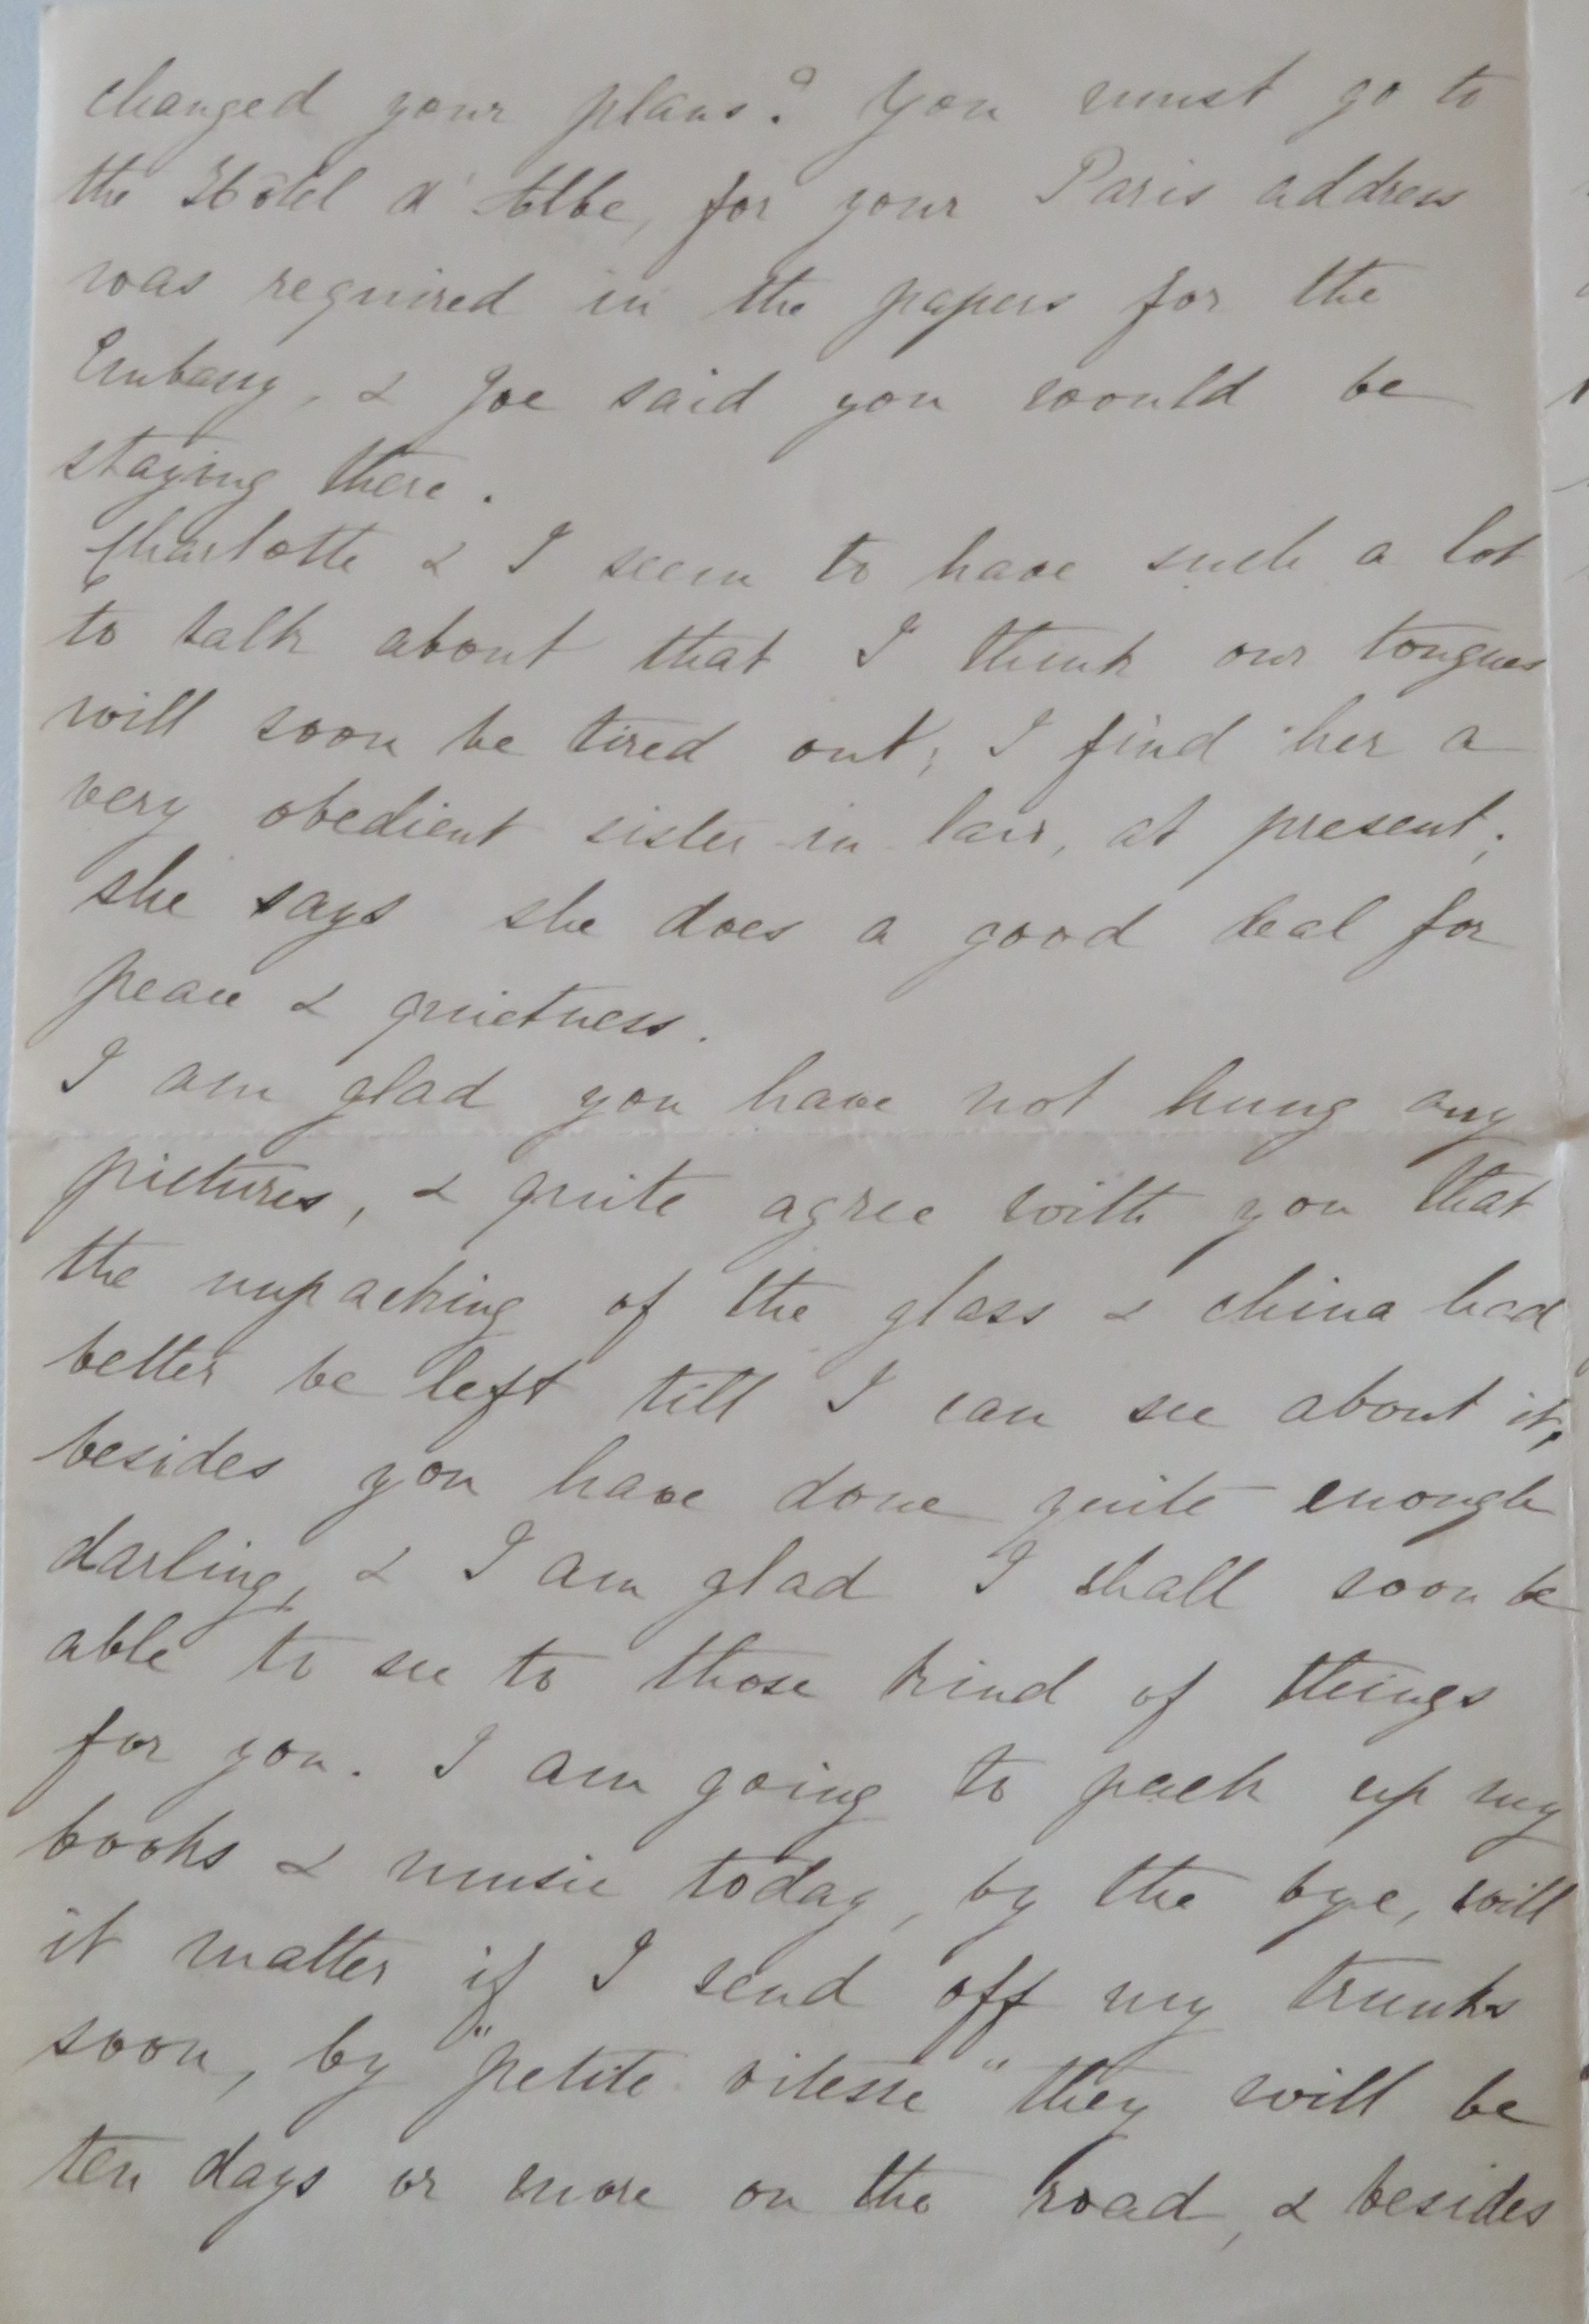 changed your plans? You must go to
the Hôtel d'Albe, for your Paris address
was required in the papers for the
Embassy, & Joe said you would be
staying there.
Charlotte & I seem to have such a lot
to talk about that I think our tongues
will soon be tired out; I find her a
very obedient sister-in-law, at present;
she says she does a good deal for
peace & quietness.
I am glad you have not hung any
pictures, & quite agree with you that
the unpacking of the glass & china had
better be left till I can see about it,
besides you have done quite enough
darling, & I am glad I shall soon be
able to see to those kind of things
for you. I am going to pack up my
books & music today, by the bye, will
it matter if I send off my trunks
soon, by "petite vitesse" they will be
ten days or more on the road, & besides